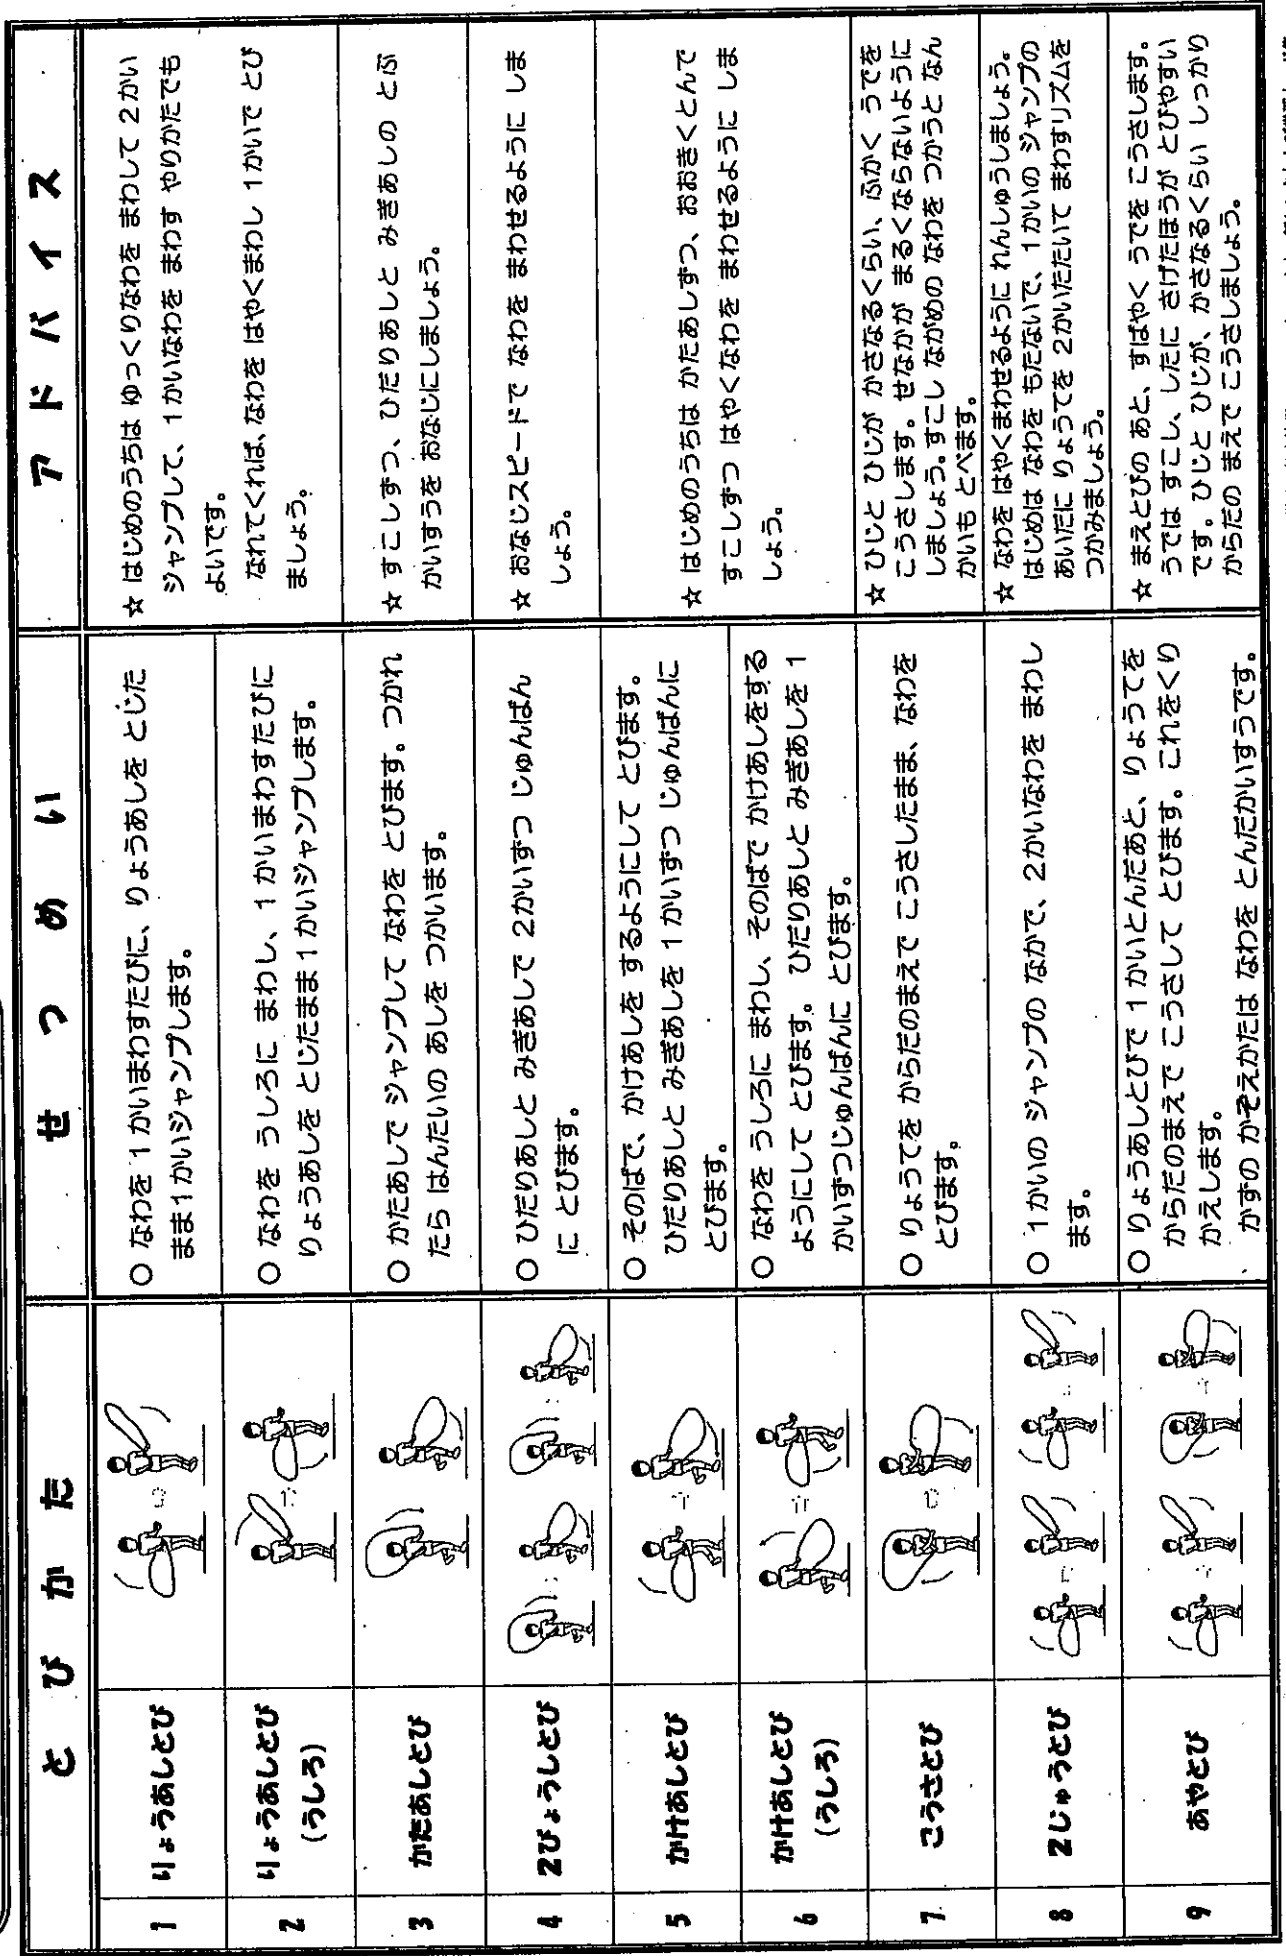 とびかた せつめい アドバイス
1 りょうあしとび
○ なわを 1かいまわすたびに、りょうあしを とじた
まま1かいジャンプします。
☆ はじめのうちは ゆっくりなわを まわして 2かい
ジャンプして、1かいなわを まわす やりかたでも
よいです。
なれてくれば、なわを はやくまわし 1かいで とび
ましょう。
2 りょうあしとび
(うしろ)
○ なわを うしろに まわし、1かいまわすたびに
りょうあしを とじたまま1かいジャンプします。
3 かたあしとび
○ かたあしで ジャンプして なわを とびます。つかれ
たら はんたいの あしを つかいます。
☆ すこしずつ、ひだりあしと みぎあしの とぶ
かいすうを おなじにしましょう。
4 2ひょうしとび
○ ひだりあしと みぎあしで 2かいずつ じゅんばん
に とびます。
☆ おなじスピードで なわを まわせるように しま
しょう。
5 かけあしとび
○ そのばで、かけあしを するようにして とびます。
ひだりあしと みぎあしを 1かいずつ じゅんばんに
とびます。
☆ はじめのうちは かたあしずつ、おおきくとんで
すこしずつ はやくなわを まわせるように しま
しょう。
6 かけあしとび
(うしろ)
○ なわを うしろに まわし、そのばで かけあしをする
ようにして とびます。 ひだりあしと みぎあしを 1
かいずつじゅんばんに とびます。
7 こうさとび
○ りょうてを からだのまえで こうさしたまま、なわを
とびます。
☆ ひじと ひじが かさなるくらい、ふかく うでを
こうさします。せなかが まるくならないように
しましょう。すこし ながめの なわを つかうと なん
かいも とべます。
8 2じゅうとび
○ 1かいの ジャンプの なかで、2かいなわを まわし
ます。
☆ なわを はやくまわせるように れんしゅうしましょう。
はじめは なわを もたないで、1かいの ジャンプの
あいだに りょうてを 2かいたたいて まわすリズムを
つかみましょう。
9 あやとび
○ りょうあしとびで 1かいとんだあと、りょうてを
からだのまえで こうさして とびます。これをくり
かえします。
かずの かぞえかたは なわを とんだかいすうです。
☆ まえとびの あと、すばやく うでを こうさします。
うでは すこし、したに さげたほうが とびやすい
です。ひじと ひじが、かさなるくらい しっかり
からだの まえで こうさしましょう。